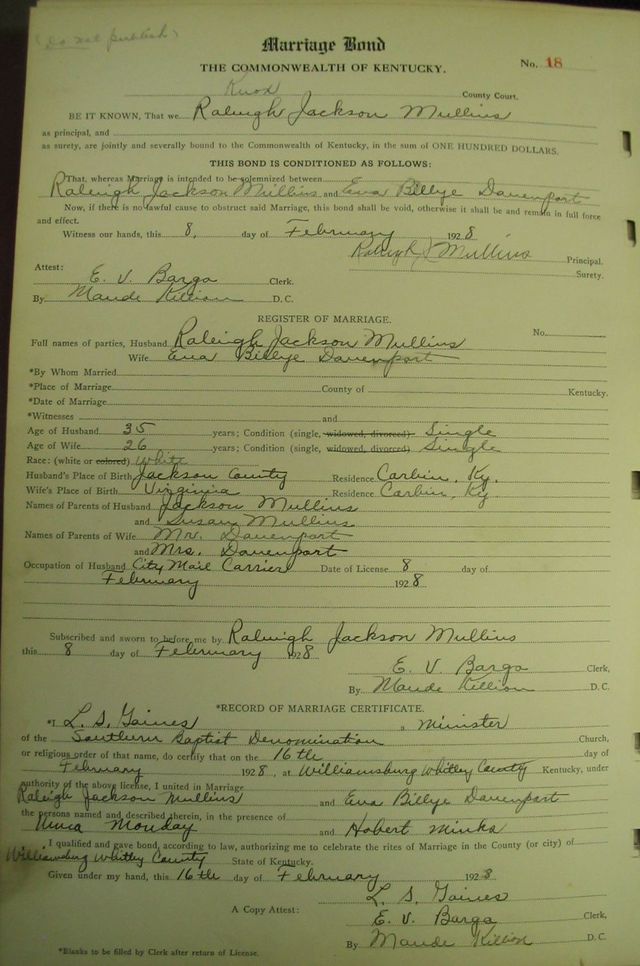 (Do not publish)
Marriage Bond
THE COMMONWEALTH OF KENTUCKY. No. 18
Knox County Court.
BE IT KNOWN, That we Raleigh Jackson Mullins
as principal, and
as surety, are jointly and severally bound to the Commonwealth of Kentucky, in the sum of ONE HUNDRED DOLLARS.
THIS BOND IS CONDITIONED AS FOLLOWS:
That, whereas Marriage is intended to be solemnized between
Raleigh Jackson Mullins and Eva Billye Davenport
Now, if there is no lawful cause to obstruct said Marriage, this bond shall be void, otherwise it shall be and remain in full force
and effect.
Witness our hands, this 8, day of February 1928
Raleigh J Mullins Principal.
Surety.
Attest:
E. V. Barga Clerk.
By Maude Killion D. C.
REGISTER OF MARRIAGE.
No.
Full names of parties, Husband Raleigh Jackson Mullins
Wife Eva Billye Davenport
*By Whom Married
*Place of Marriage County of Kentucky.
*Date of Marriage
*Witnesses and
Age of Husband 35 years; Condition (single, widowed, divorced) Single
Age of Wife 26 years; Condition (single, widowed, divorced) Single
Race: (white or colored) White
Husband's Place of Birth Jackson County Residence Corbin, Ky.
Wife's Place of Birth Virginia Residence Corbin, Ky
Names of Parents of Husband Jackson Mullins
and Susan Mullins
Names of Parents of Wife Mr. Davenport
and Mrs. Davenport
Occupation of Husband City Mail Carrier Date of License 8 day of
February 1928
Subscribed and sworn to before me by Raleigh Jackson Mullins
this 8 day of February 1928
E. V. Barga Clerk,
By Maude Killion D. C.
*RECORD OF MARRIAGE CERTIFICATE.
*I L. S. Gaines a minister
of the Southern Baptist Denomination Church,
or religious order of that name, do certify that on the 16th day of
February 1928, at Williamsburg Whitley County Kentucky, under
authority of the above license, I united in Marriage
Raleigh Jackson Mullins and Eva Billye Davenport
the persons named and described therein, in the presence of
Monday and Hobert Minks
I qualified and gave bond, according to law, authorizing me to celebrate the rites of Marriage in the County (or city) of
Williamsburg Whitley County State of Kentucky.
Given under my hand, this 16th day of February 1928
L. S. Gaines
A Copy Attest: E. V. Barga Clerk,
By Maude Killion D. C.
*Blanks to be filled by Clerk after return of License.